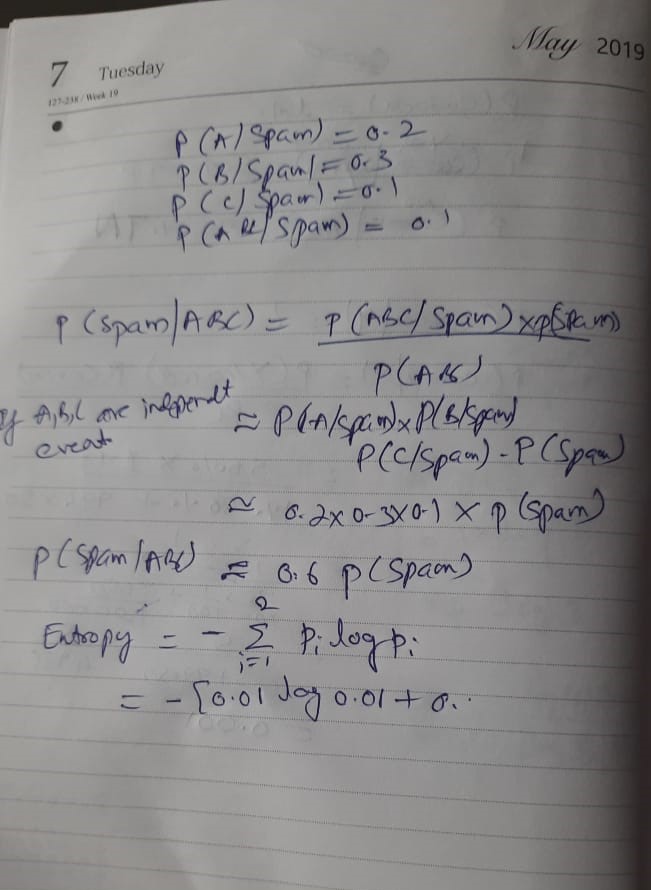 May 2019
7 Tuesday
127-238 / Week 19
P(A/Spam) = 0.2
P(B/Spam) = 0.3
P(C/Spam) = 0.1
P(ABC/Spam) = 0.1
P(Spam/ABC) = P(ABC/Spam) x P(Spam)
P(ABC)
If A,B,C are indpendt
event
≈ P(A/Spam) x P(B/Spam)
P(C/Spam) - P(Spam)
≈ 0.2 x 0.3 x 0.1 x P(Spam)
P(Spam/ABC) ≈ 0.6 P(Spam)
Entropy = - 2 Σ i=1 Pi log Pi
= - [0.01 log 0.01 + 0..